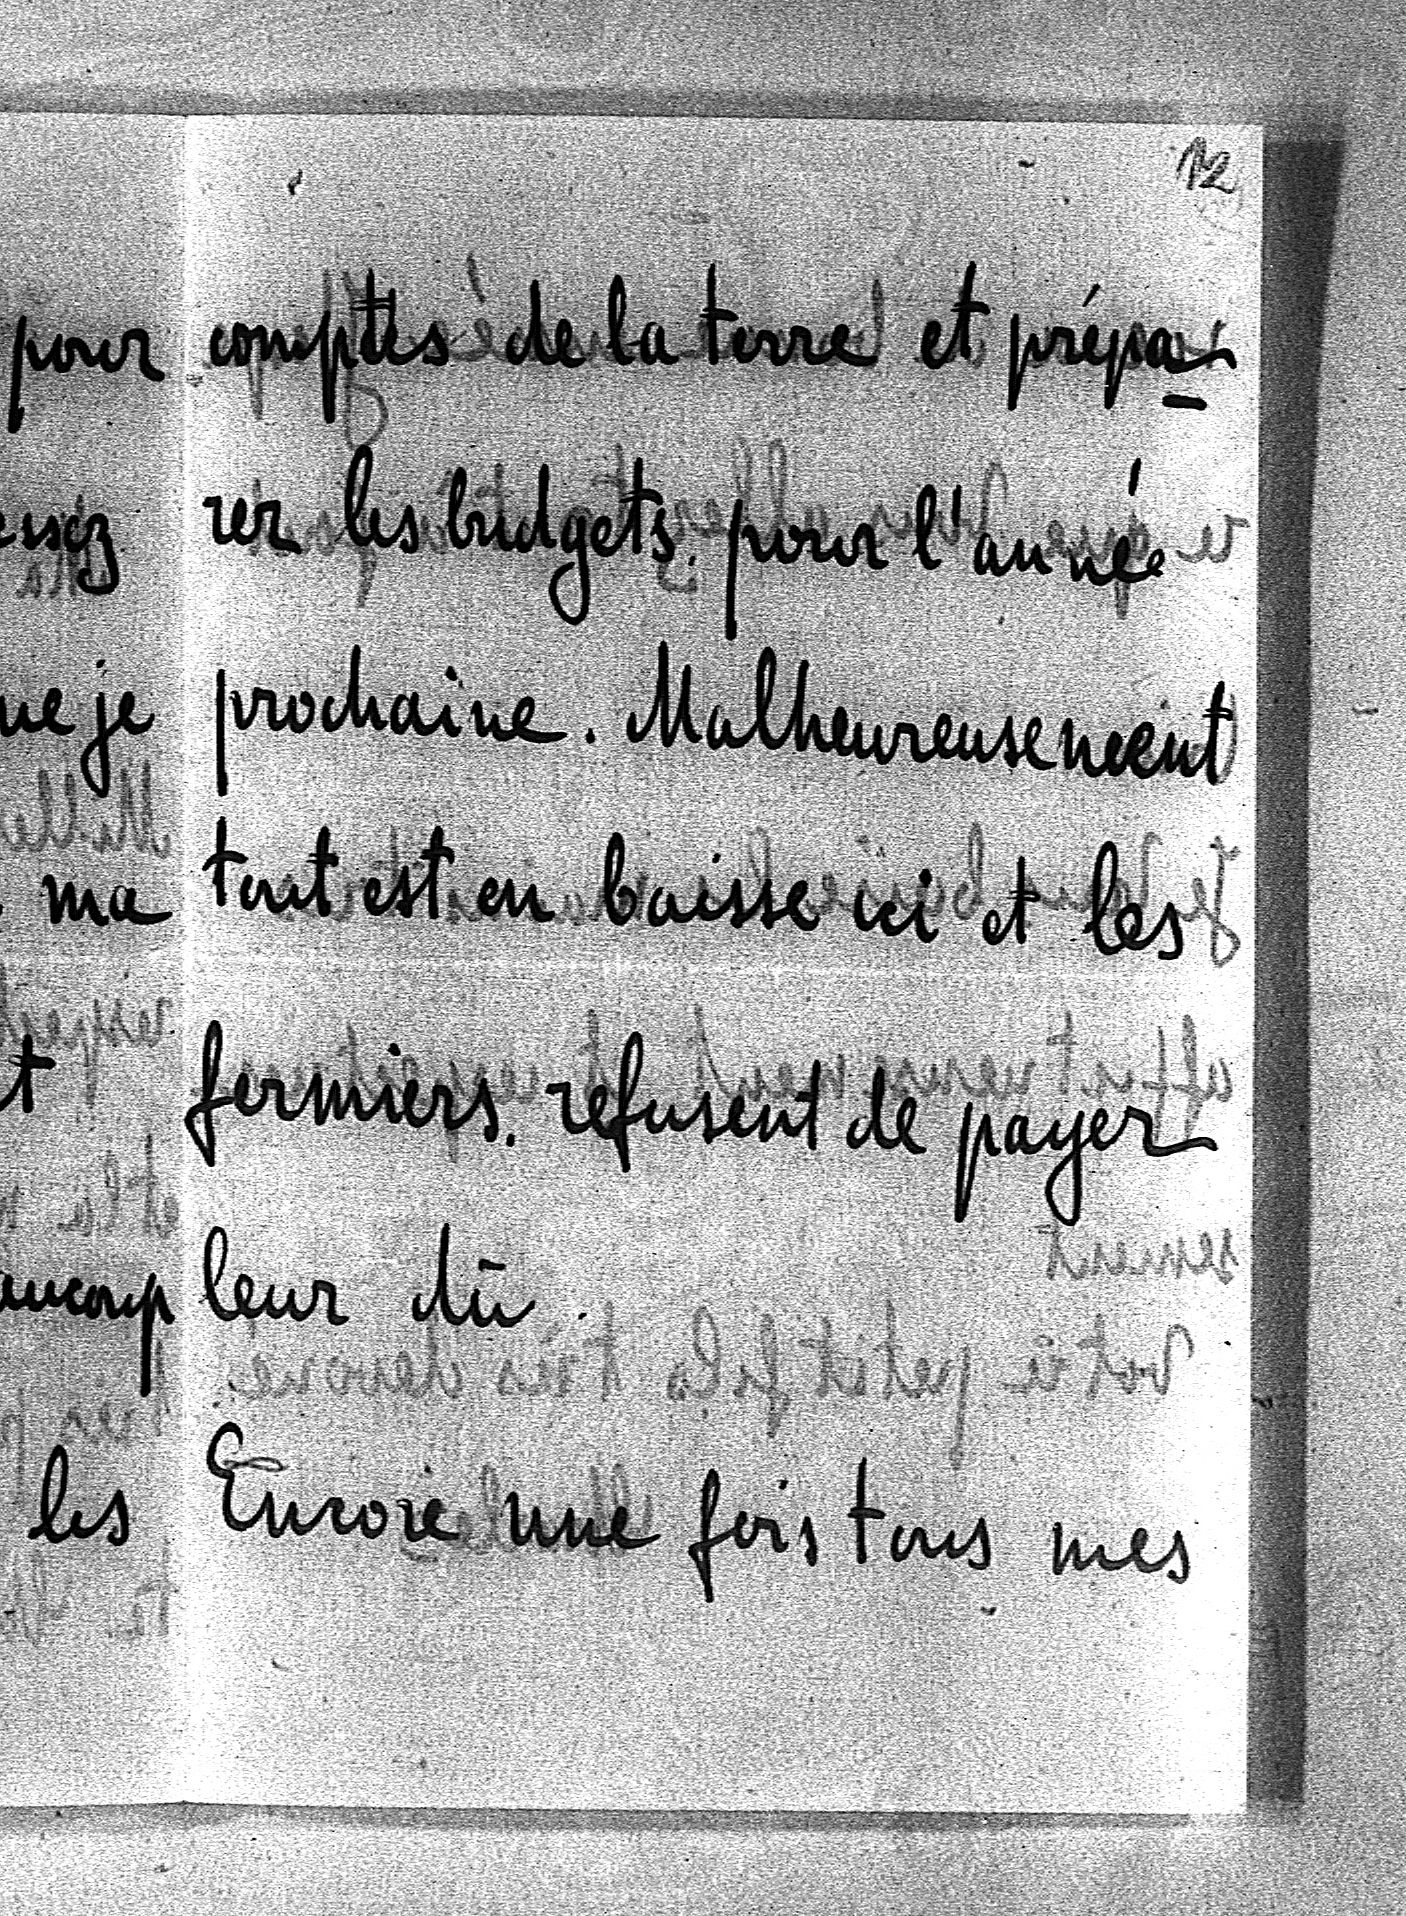 12
pour comptes de la terre et prépa-
rer les budgets pour l'année
ue je prochaine. Malheureusement
ma tout est en baisse ici et les
t fermiers refusent de payer
aucoup leur dû.
les Encore une fois tous mes